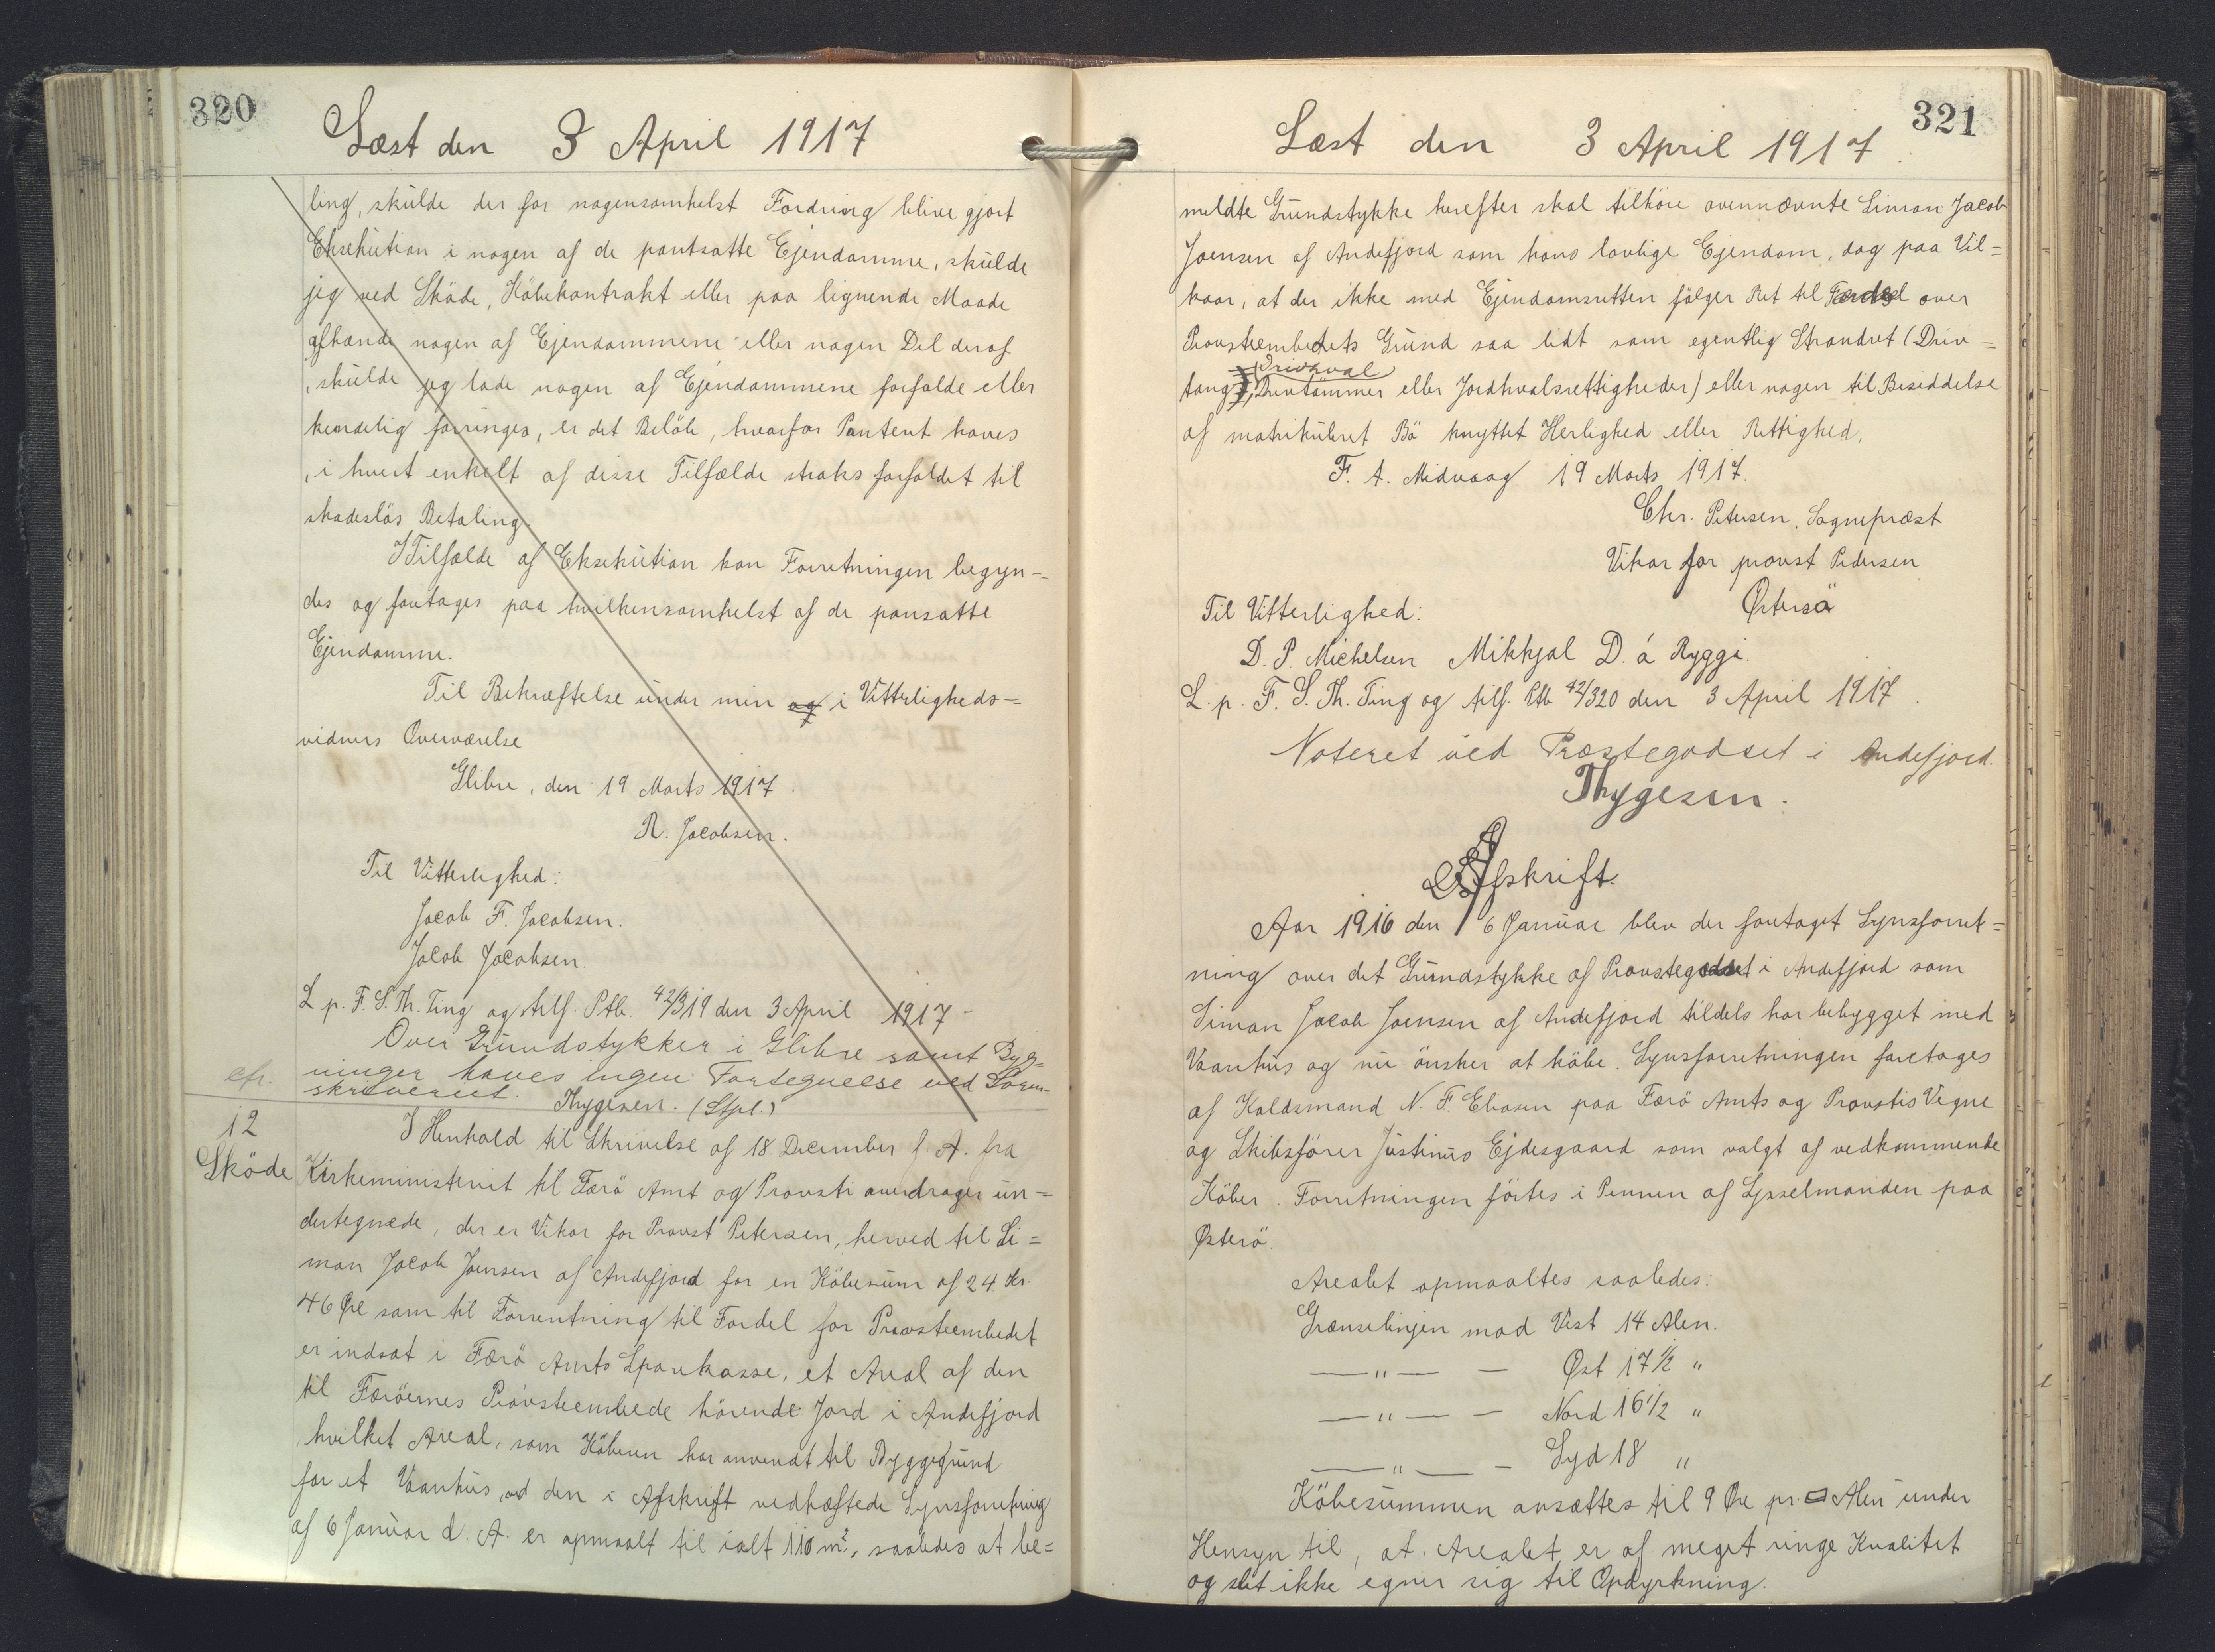 320
Læst den 3 April 1917
ling, skulde der for nogensomhelst Fordring blive gjort
Eksekution i nogen af de pantsatte Ejendomme, skulde
jeg ved Sköde, Köbekontrakt eller paa lignende Maade
afhænde nogen af Ejendommene eller nogen Del deraf
, skulde jeg lade nogen af Ejendommene forfalde eller
kendelig forringes, er det Belöb, hvorfor Pantent haves
, i hvert enkelt af disse Tilfælde straks forfaldet til
skadeslös Betaling.
I Tilfælde af Eksekution kan Forretningen begyn-
des og foretages paa hvilkensomhelst af de pansatte
Ejendomme.
Til Bekræftelse under min og i Vitterligheds=
vidners Overværelse
Glibre, den 19 Marts 1917.
R. Jacobsen.
Til Vitterlighed:
Jacob F. Jacobsen.
Jacob Jacobsen.
L. p. F. S. Th. Ting og tilf. Ptb. 42/319 den 3 April 1917-
Over Grundstykker i Glibre samt Byg=
ninger haves ingen Fortegnelse ved Soren-
efr.
skriveriet. Thygesen. (Stpl.)
12
Sköde
I Henhold til Skrivelse af 18 December f. A. fra
Kirkeministeriet til Færö Amt og Provsti overdrager un=
dertegnede, der er Vikar for Provst Petersen, herved til Si=
mon Jacob Joensen af Andefjord for en Köbesum af 24 Kr.
46 Øre som til Forrentning til Fordel for Provsteembedet
er indsat i Færö Amts Sparekasse, et Areal af den
til Færöernes Provsteembede hörende Jord i Andefjord
hvilket Areal, som Köberen har anvendt til Byggegrund
for et Vaanhus, ved den i Afskrift vedhæftede Synsforretning
af 6 Januar d. A. er opmaalt til ialt 110 m², saaledes at be=
321
Læst den 3 April 1917.
meldte Grundstykke herefter skal tilhöre ovennævnte Simon Jacob
Joensen af Andefjord som hans lovlige Ejendom, dog paa Vil=
kaar, at der ikke med Ejendomsretten fölger Ret til Færdsel over
Provsteembedets Grund saa lidt som egentlig Strandret (Driv=
Drivhval
tang, Drivtömmer eller Jordhvalsrettigheder) eller nogen til Besiddelse
af matrikuleret Bö knyttet Herlighed eller Rettighed,
F. t. Midvaag 19 Marts 1917.
Chr. Petersen, Sognepræst
Vikar for provst Pedersen
Østersö
Til Vitterlighed:
D. P. Michelsen Mikkjal D. á Ryggi.
L. p. F. S. Th. Ting og tilf. Ptb 42/320 den 3 April 1917.
Noteret ved Præstegodset i Andefjord.
Thygesen.
Afskrift.
Aar 1916 den 6 Januar blev der foretaget Synsforret=
ning over det Grundstykke af Provstegodset i Andefjord som
Simon Jacob Joensen af Andefjord tildels har bebygget med
Vaanhus og nu önsker at köbe. Synsforretningen foretages
af Kaldsmand N. F. Eliasen paa Færö Amts og Provstis Vegne
og Skibsförer Justinus Ejdesgaard som valgt af vedkommende
Köber. Forretningen förtes i Pennen af Sysselmanden paa
Østerö.
Arealet opmaaltes saaledes:
Grænselinjen mod Vest 14 Alen.
— " — — Øst 17 1/2 "
— " — — Nord 16 1/2 "
— " — — Syd 18 "
Köbesummen ansættes til 9 Øre pr. □ Alen under
Hensyn til, at Arealet er af meget ringe Kvalitet
og slet ikke egner sig til Opdyrkning.